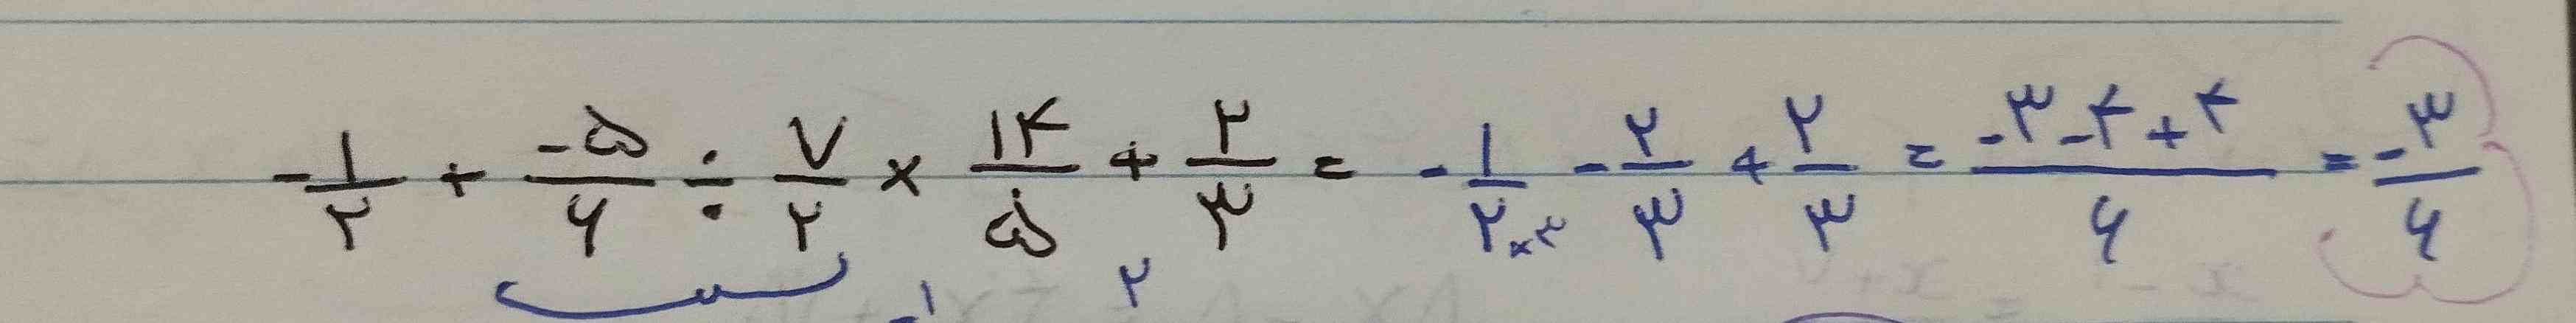 -۱/۲ + -۵/۶ ÷ ۷/۲ × ۱۴/۵ + ۲/۳ = -۱/۲×۳ - ۲/۳ + ۲/۳ = -۳-۴+۴/۶ = -۳/۶
-۱ ۲